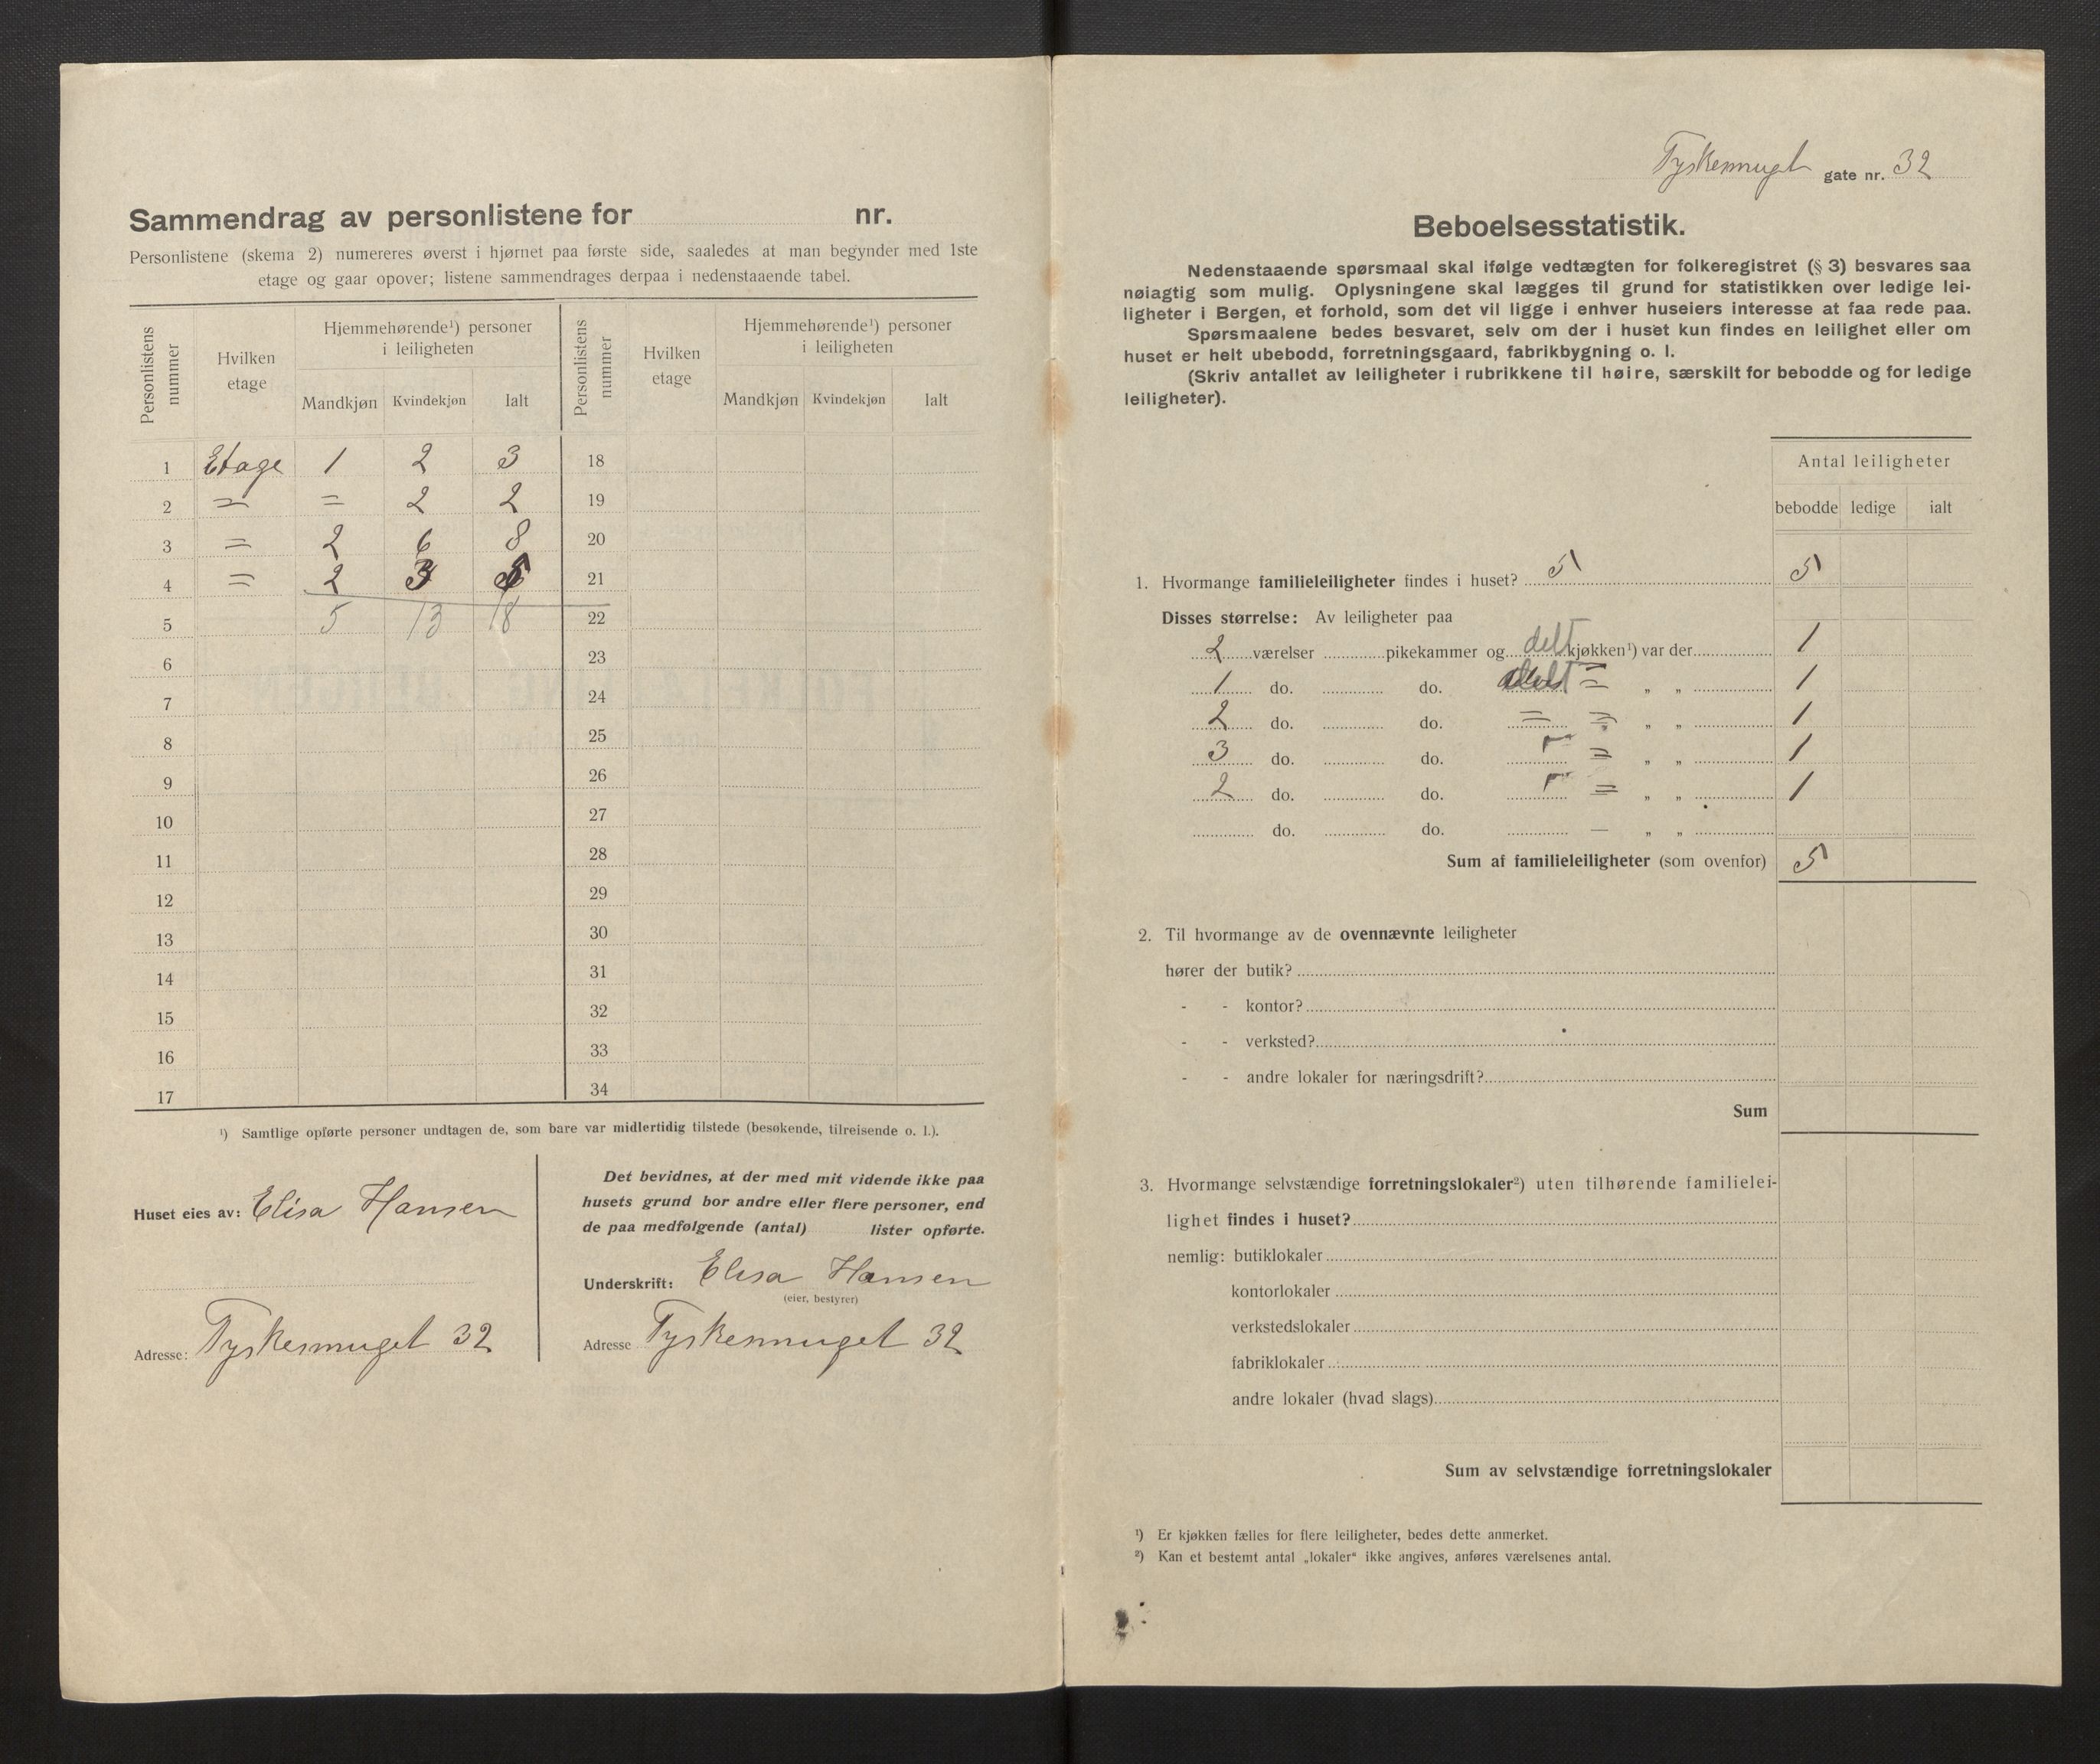 Sammendrag av personlistene for nr.
Personlistene (skema 2) numereres øverst i hjørnet paa første side, saaledes at man begynder med 1ste
etage og gaar opover; listene sammendrages derpaa i nedenstaaende tabel.
Personlistens nummer Hvilken etage Hjemmehørende¹) personer i leiligheten Personlistens nummer Hvilken etage Hjemmehørende¹) personer i leiligheten
Mandkjøn Kvindekjøn Ialt Mandkjøn Kvindekjøn Ialt
1 Etage 1 2 3 18
2 = = 2 2 19
3 = 2 6 8 20
4 = 2 3 5 21
5 5 13 18 22
6 23
7 24
8 25
9 26
10 27
11 28
12 29
13 30
14 31
15 32
16 33
17 34
¹) Samtlige opførte personer undtagen de, som bare var midlertidig tilstede (besøkende, tilreisende o. l.).
Huset eies av: Elisa Hansen
Adresse: Tyskesmuget 32
Det bevidnes, at der med mit vidende ikke paa
husets grund bor andre eller flere personer, end
de paa medfølgende (antal) lister opførte.
Underskrift: Elisa Hansen
(eier, bestyrer)
Adresse Tyskesmuget 32
Tyskesmuget gate nr. 32
Beboelsesstatistik.
Nedenstaaende spørsmaal skal ifølge vedtægten for folkeregistret (§ 3) besvares saa
nøiagtig som mulig. Oplysningene skal lægges til grund for statistikken over ledige lei-
ligheter i Bergen, et forhold, som det vil ligge i enhver huseiers interesse at faa rede paa.
Spørsmaalene bedes besvaret, selv om der i huset kun findes en leilighet eller om
huset er helt ubebodd, forretningsgaard, fabrikbygning o. l.
(Skriv antallet av leiligheter i rubrikkene til høire, særskilt for bebodde og for ledige
leiligheter).
Antal leiligheter
bebodde ledige ialt
1. Hvormange familieleiligheter findes i huset? 5 5
Disses størrelse: Av leiligheter paa
2 værelser pikekammer og delt kjøkken¹) var der 1
1 do. do. delt = „ „ 1
2 do. do. = = „ „ 1
3 do. do. = „ „ 1
2 do. do. = „ „ 1
do. do. — „ „
Sum af familieleiligheter (som ovenfor) 5
2. Til hvormange av de ovennævnte leiligheter
hører der butik?
- - kontor?
- - verksted?
- - andre lokaler for næringsdrift?
Sum
3. Hvormange selvstændige forretningslokaler²) uten tilhørende familielei-
lighet findes i huset?
nemlig: butiklokaler
kontorlokaler
verkstedslokaler
fabriklokaler
andre lokaler (hvad slags)
Sum av selvstændige forretningslokaler
¹) Er kjøkken fælles for flere leiligheter, bedes dette anmerket.
²) Kan et bestemt antal „lokaler“ ikke angives, anføres værelsenes antal.